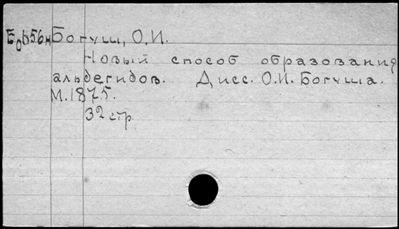 Богуш, О.И.
Новый способ образования
альдегидов. Дисс. О.И. Богуша.
М. 1875.
32 стр.